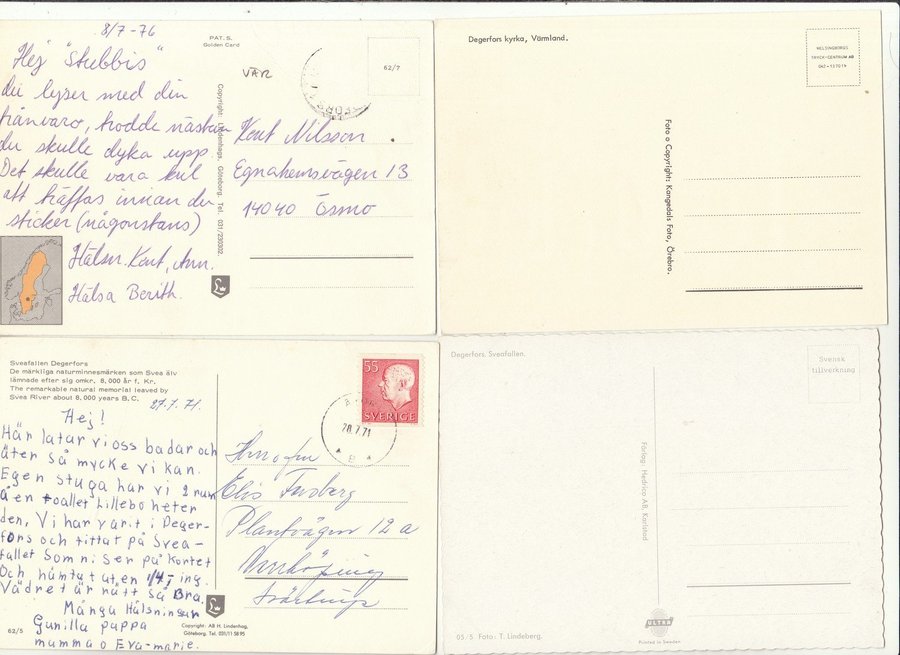 8/7-76
PAT. S.
Golden Card
62/7
VAR
Hej "Stubbis"
Du lyser med din
frånvaro, trodde nästan
du skulle dyka upp.
Det skulle vara kul
att träffas innan du
sticker (någonstans)
Hälsn. Kent, Ann.
Hälsa Berith.
Copyright: Lindenhags, Göteborg. Tel. 031/230302.
Kent Nilsson
Egnahemsvägen 13
14040 Ösmo
Degerfors kyrka, Värmland.
HELSINGBORGS
TRYCK-CENTRUM AB
042-137019
Foto o Copyright: Kangedals Foto, Örebro.
Sveafallen Degerfors
De märkliga naturminnesmärken som Svea älv
lämnade efter sig omkr. 8,000 år f. Kr.
The remarkable natural memorial leaved by
Svea River about 8,000 years B.C.
27.7.71.
Hej!
Här latar vi oss badar och
äter så mycke vi kan.
Egen stuga har vi 2 rum
å en toallet Lillebo heter
den, Vi har varit i Deger-
fors och tittat på Svea-
fallet Som ni Ser på kortet
Och hämtat uten 1/4,- ing.
Vädret är nått så Bra.
Många Hälsningar
Gunilla pappa
mamma o Eva-marie.
62/5
Copyright: AB H. Lindenhag,
Göteborg. Tel. 031/11 58 95
55
SVERIGE
28.7.71
Elis
Plantvägen 12 a
Degerfors. Sveafallen.
Svensk
tillverkning
Förlag: Hedrico AB, Karlstad
03/5 Foto: T. Lindeberg.
ULTRA
Printed in Sweden